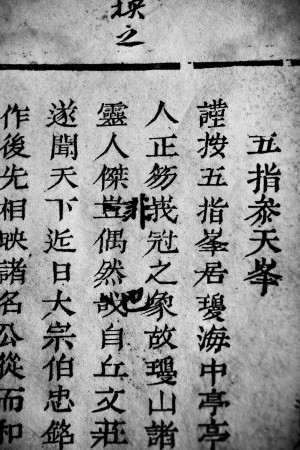 之
五指叅天峯
謹按五指峯居瓊海中亭亭
人正笏峩冠之象故瓊山諸
非
靈人傑豈偶然哉自丘文莊
遂聞天下近日大宗伯忠銘
作後先相映諸名公從而和